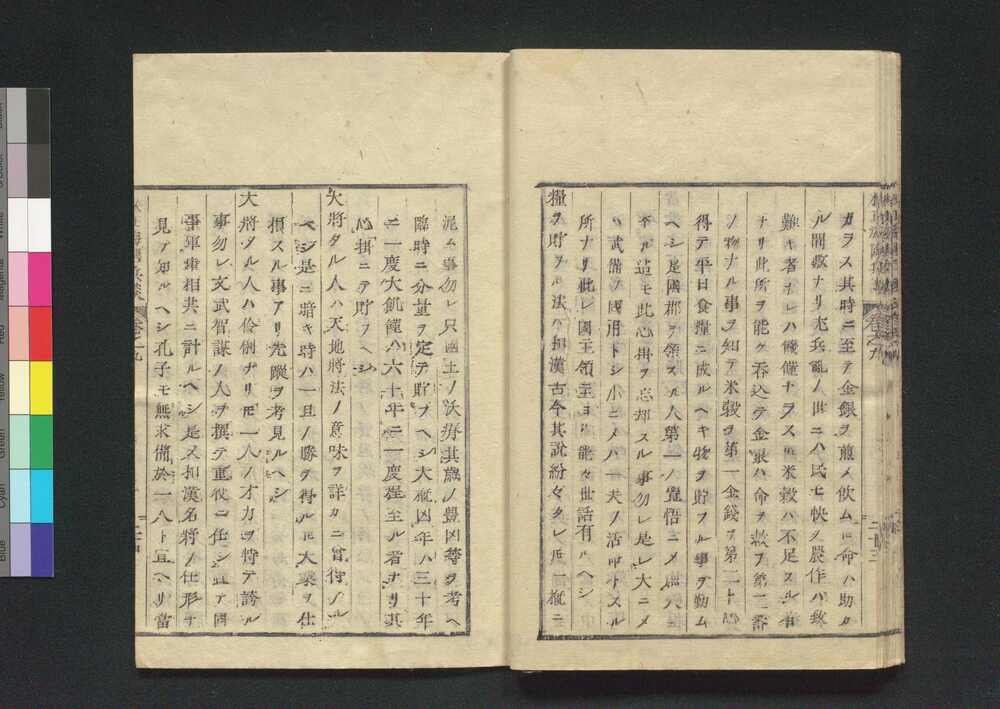 カラス其時ニ至テ金銀ヲ煎メ飲ムモ命ハ助カ
ル間敷ナリ尤兵亂ノ世ニハ民モ快ク農作ハ致
難キ者ナレハ饑饉ナラスモ米穀ハ不足スル者
ナリ此所ヲ能ク呑込テ金銀ハ命ヲ救フ第二番
ノ物ナル事ヲ知テ米穀ヲ第一金錢ヲ第二ト心
得テ平日食糧ニ成ルヘキ物ヲ貯フル事ヲ勤ム
ヘシ是國郡ヲ領スル人第一ノ覺悟ニメ庶人
本ル迠モ此心掛ヲ忘却スル事勿レ是レ大ニメ
ハ武備ヲ國用トシ小ニメハ一夫ノ活命トスル
所ナリ此レ國主領主ヨリ能々世話有ルヘシ
糧ヲ貯ヲル法ハ和漢古今其說紛々タレ圧一概ニ
泥ム事勿レ只國土ノ沃瘠其歳ノ豐凶等ヲ考ヘ
臨時ニ分量ヲ定テ貯フヘシ大概凶年ハ三十年
ニ一度大飢饉ハ六十年ニ一度程至ル者ナリ其
心掛ニテ貯フヘシ
大將タル人ハ天地將法ノ意味ヲ詳カニ會得ノル
ヘシ是ニ暗キ時ハ一旦ノ勝ヲ得ル圧大業ヲ仕
損スル事アリ先蹤ヲ考見ルヘシ
大將タル人ハ伶俐ナリ圧一人ノ才力ヲ恃テ誇ル
事勿レ文武智謀ノ人ヲ撰テ重役ニ任シ置テ國
事軍事相共ニ計ルヘシ是又和漢名將ノ仕形ヲ
見テ知ルヘシ孔子モ無求備於一人ト宣ヘリ當